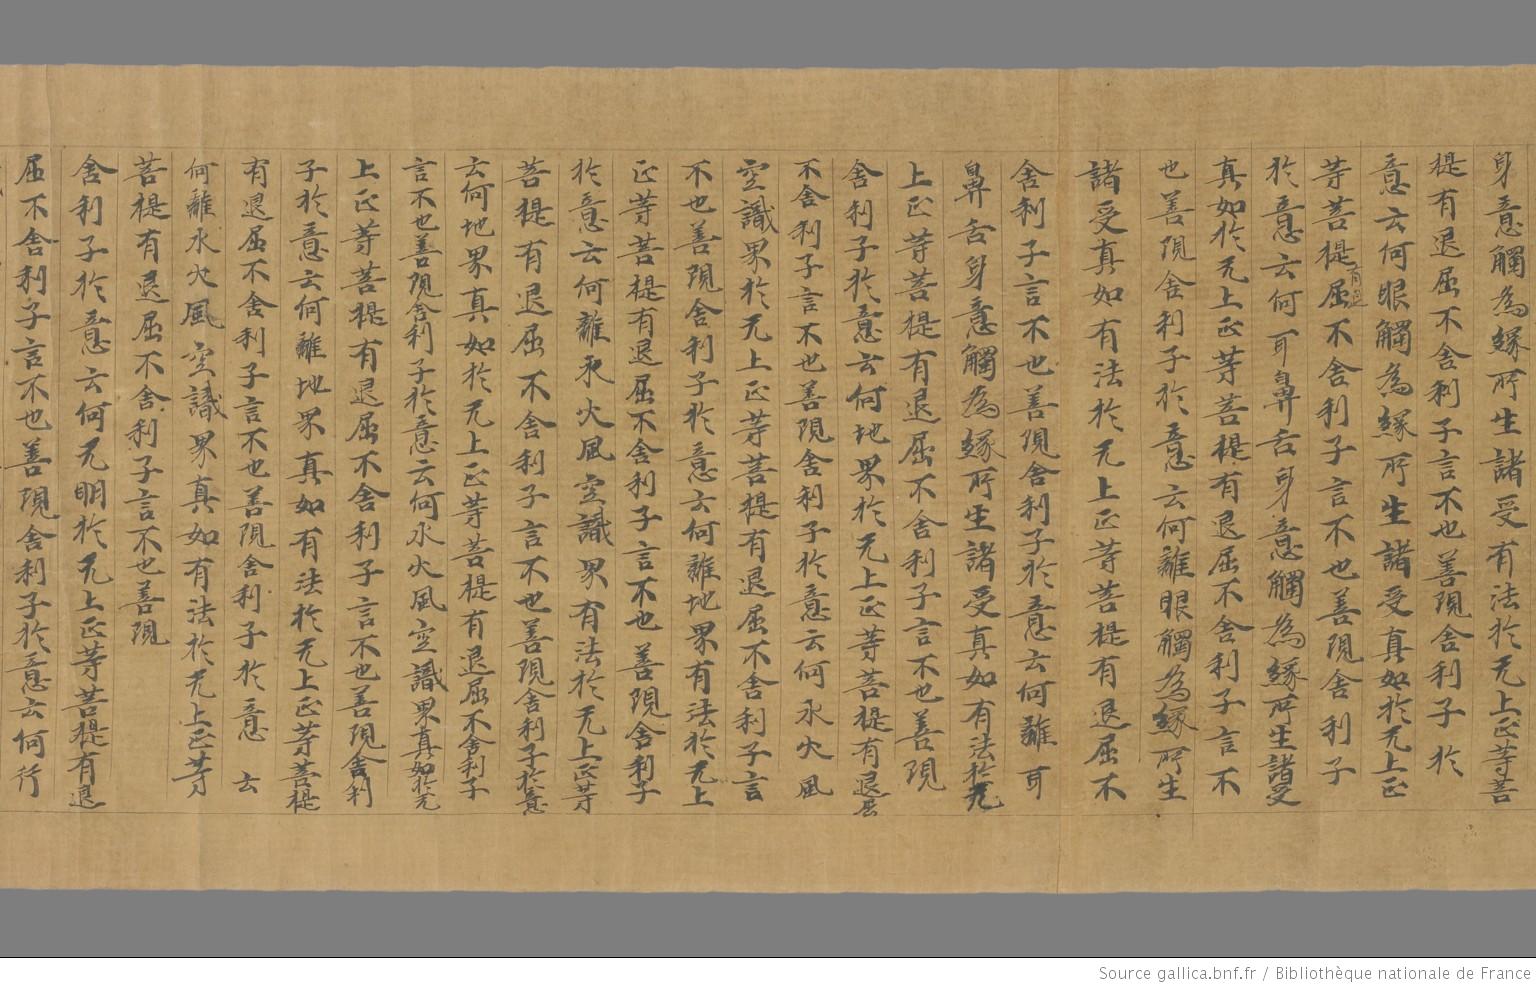 身意觸為緣所生諸受有法於无上正等菩
提有退屈不舍利子言不也善現舍利子於
意云何眼觸為緣所生諸受真如於无上正
等菩提有退屈不舍利子言不也善現舍利子
於意云何耳鼻舌身意觸為緣所生諸受
真如於无上正等菩提有退屈不舍利子言不
也善現舍利子於意云何離眼觸為緣所生
諸受真如有法於无上正等菩提有退屈不
舍利子言不也善現舍利子於意云何離耳
鼻舌身意觸為緣所生諸受真如有法於无
上正等菩提有退屈不舍利子言不也善現
舍利子於意云何地界於无上正等菩提有退屈
不舍利子言不也善現舍利子於意云何水火風
空識界於无上正等菩提有退屈不舍利子言
不也善現舍利子於意云何離地界有法於无上
正等菩提有退屈不舍利子言不也善現舍利子
於意云何離水火風空識界有法於无上正等
菩提有退屈不舍利子言不也善現舍利子於意
云何地界真如於无上正等菩提有退屈不舍利子
言不也善現舍利子於意云何水火風空識界真如於无
上正等菩提有退屈不舍利子言不也善現舍利
子於意云何離地界真如有法於无上正等菩提
有退屈不舍利子言不也善現舍利子於意云
何離水火風空識界真如有法於无上正等
菩提有退屈不舍利子言不也善現
舍利子於意云何无明於无上正等菩提有退
屈不舍利子言不也善現舍利子於意云何行
Source gallica.bnf.fr / Bibliothèque nationale de France